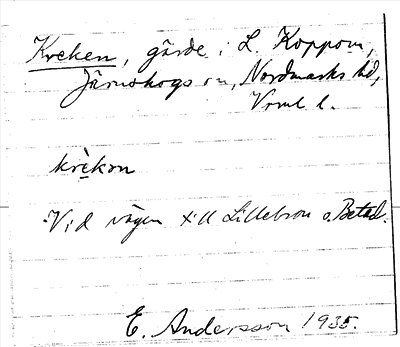 Kreken, gärde i L. Koppom,
Järnskogs sn, Nordmarks hd,
Vrml. l.
krèkon
Vid vägen till Lillebron o.
E. Andersson 1935.